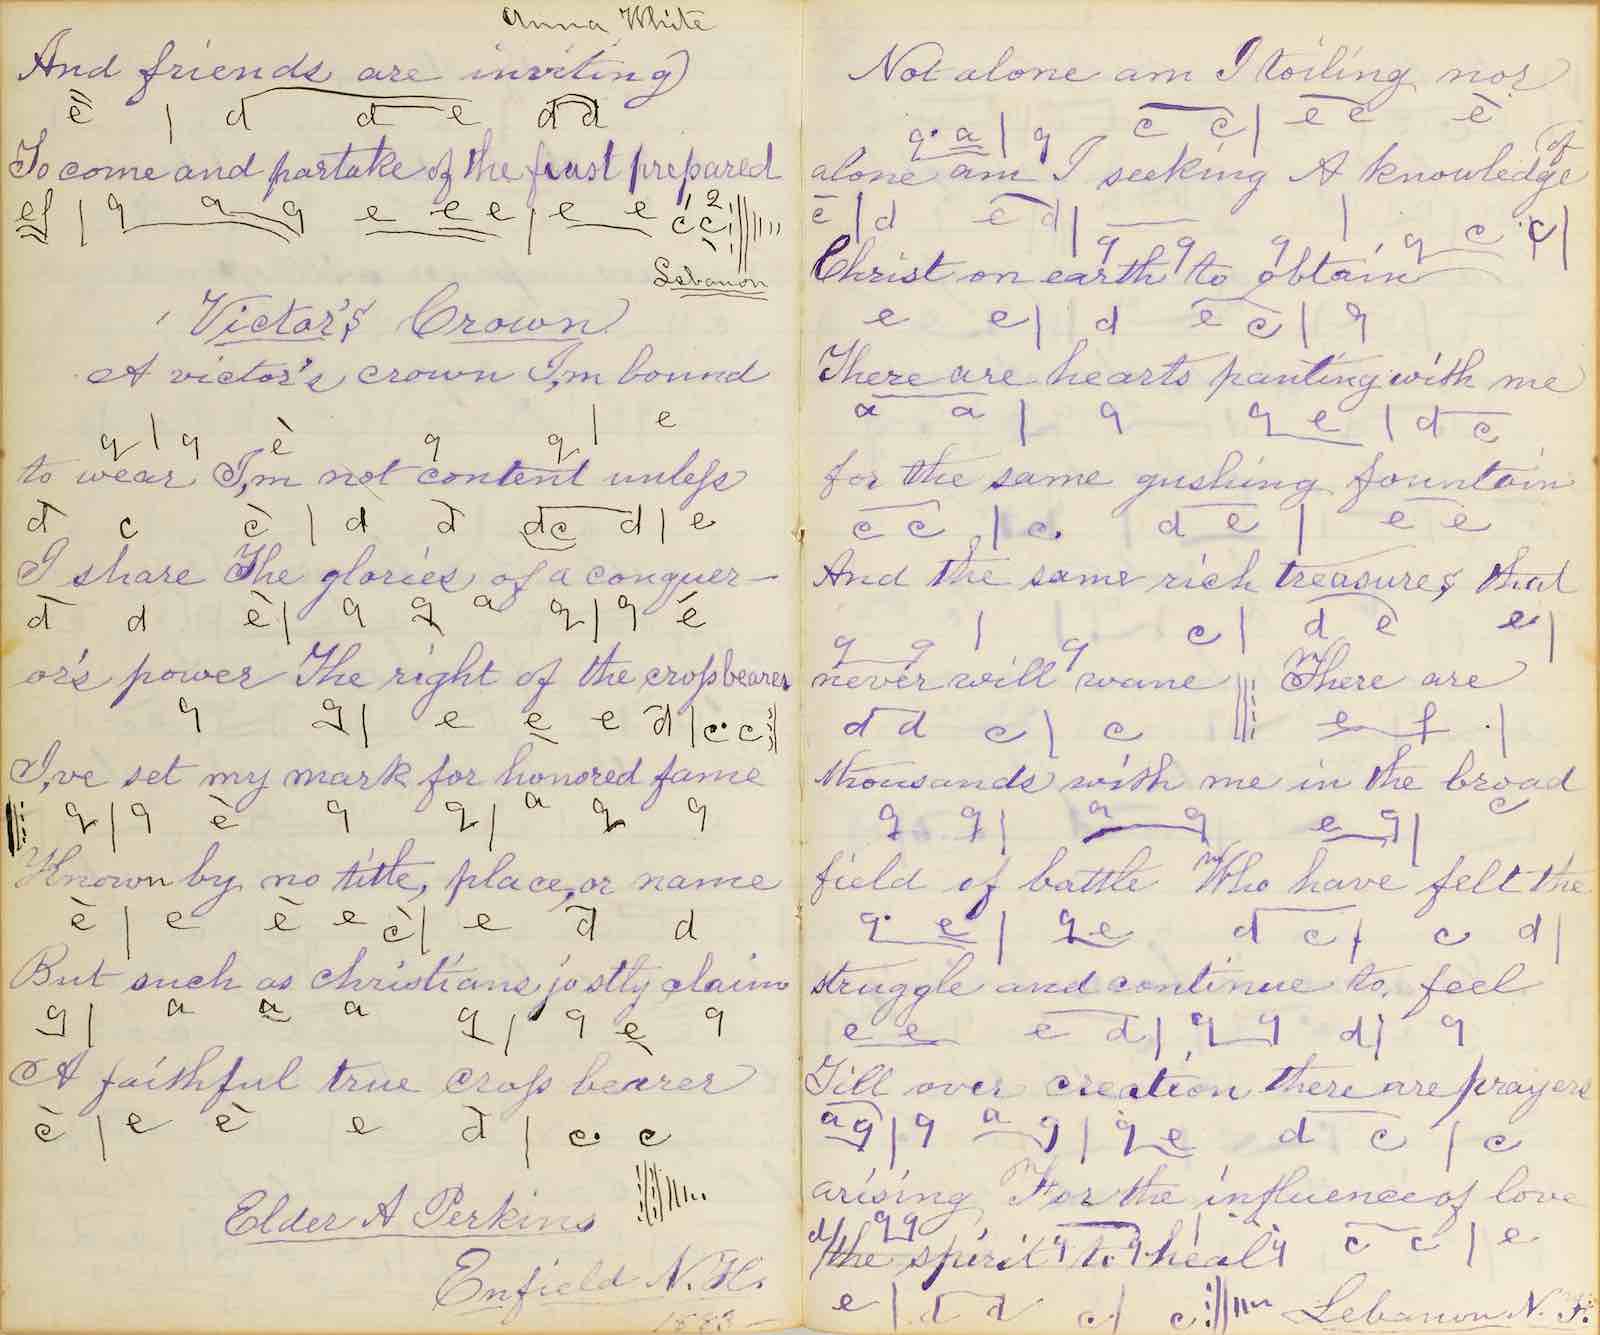 Anna White
And friends are inviting
To come and partake of the feast prepared
Lebanon
Victor's Crown
A victor's crown I,m bound
to wear I,m not content unless
I share The glories of a conquer-
or's power The right of the cross bearer
I,ve set my mark for honored fame
Known by no title, place, or name
But such as christians jostly claim
A faithful true cross bearer
Elder A Perkins
Enfield N. H.
Not alone am I toiling nor
alone am I seeking A knowledge of
Christ on earth to obtain
There are hearts panting with me
for the same gushing fountain
And the same rich treasures that
never will wane There are
thousands with me in the broad
field of battle Who have felt the
struggle and continue to feel
Till over creation there are prayers
arising For the influence of love
the spirit to heal
Lebanon N.